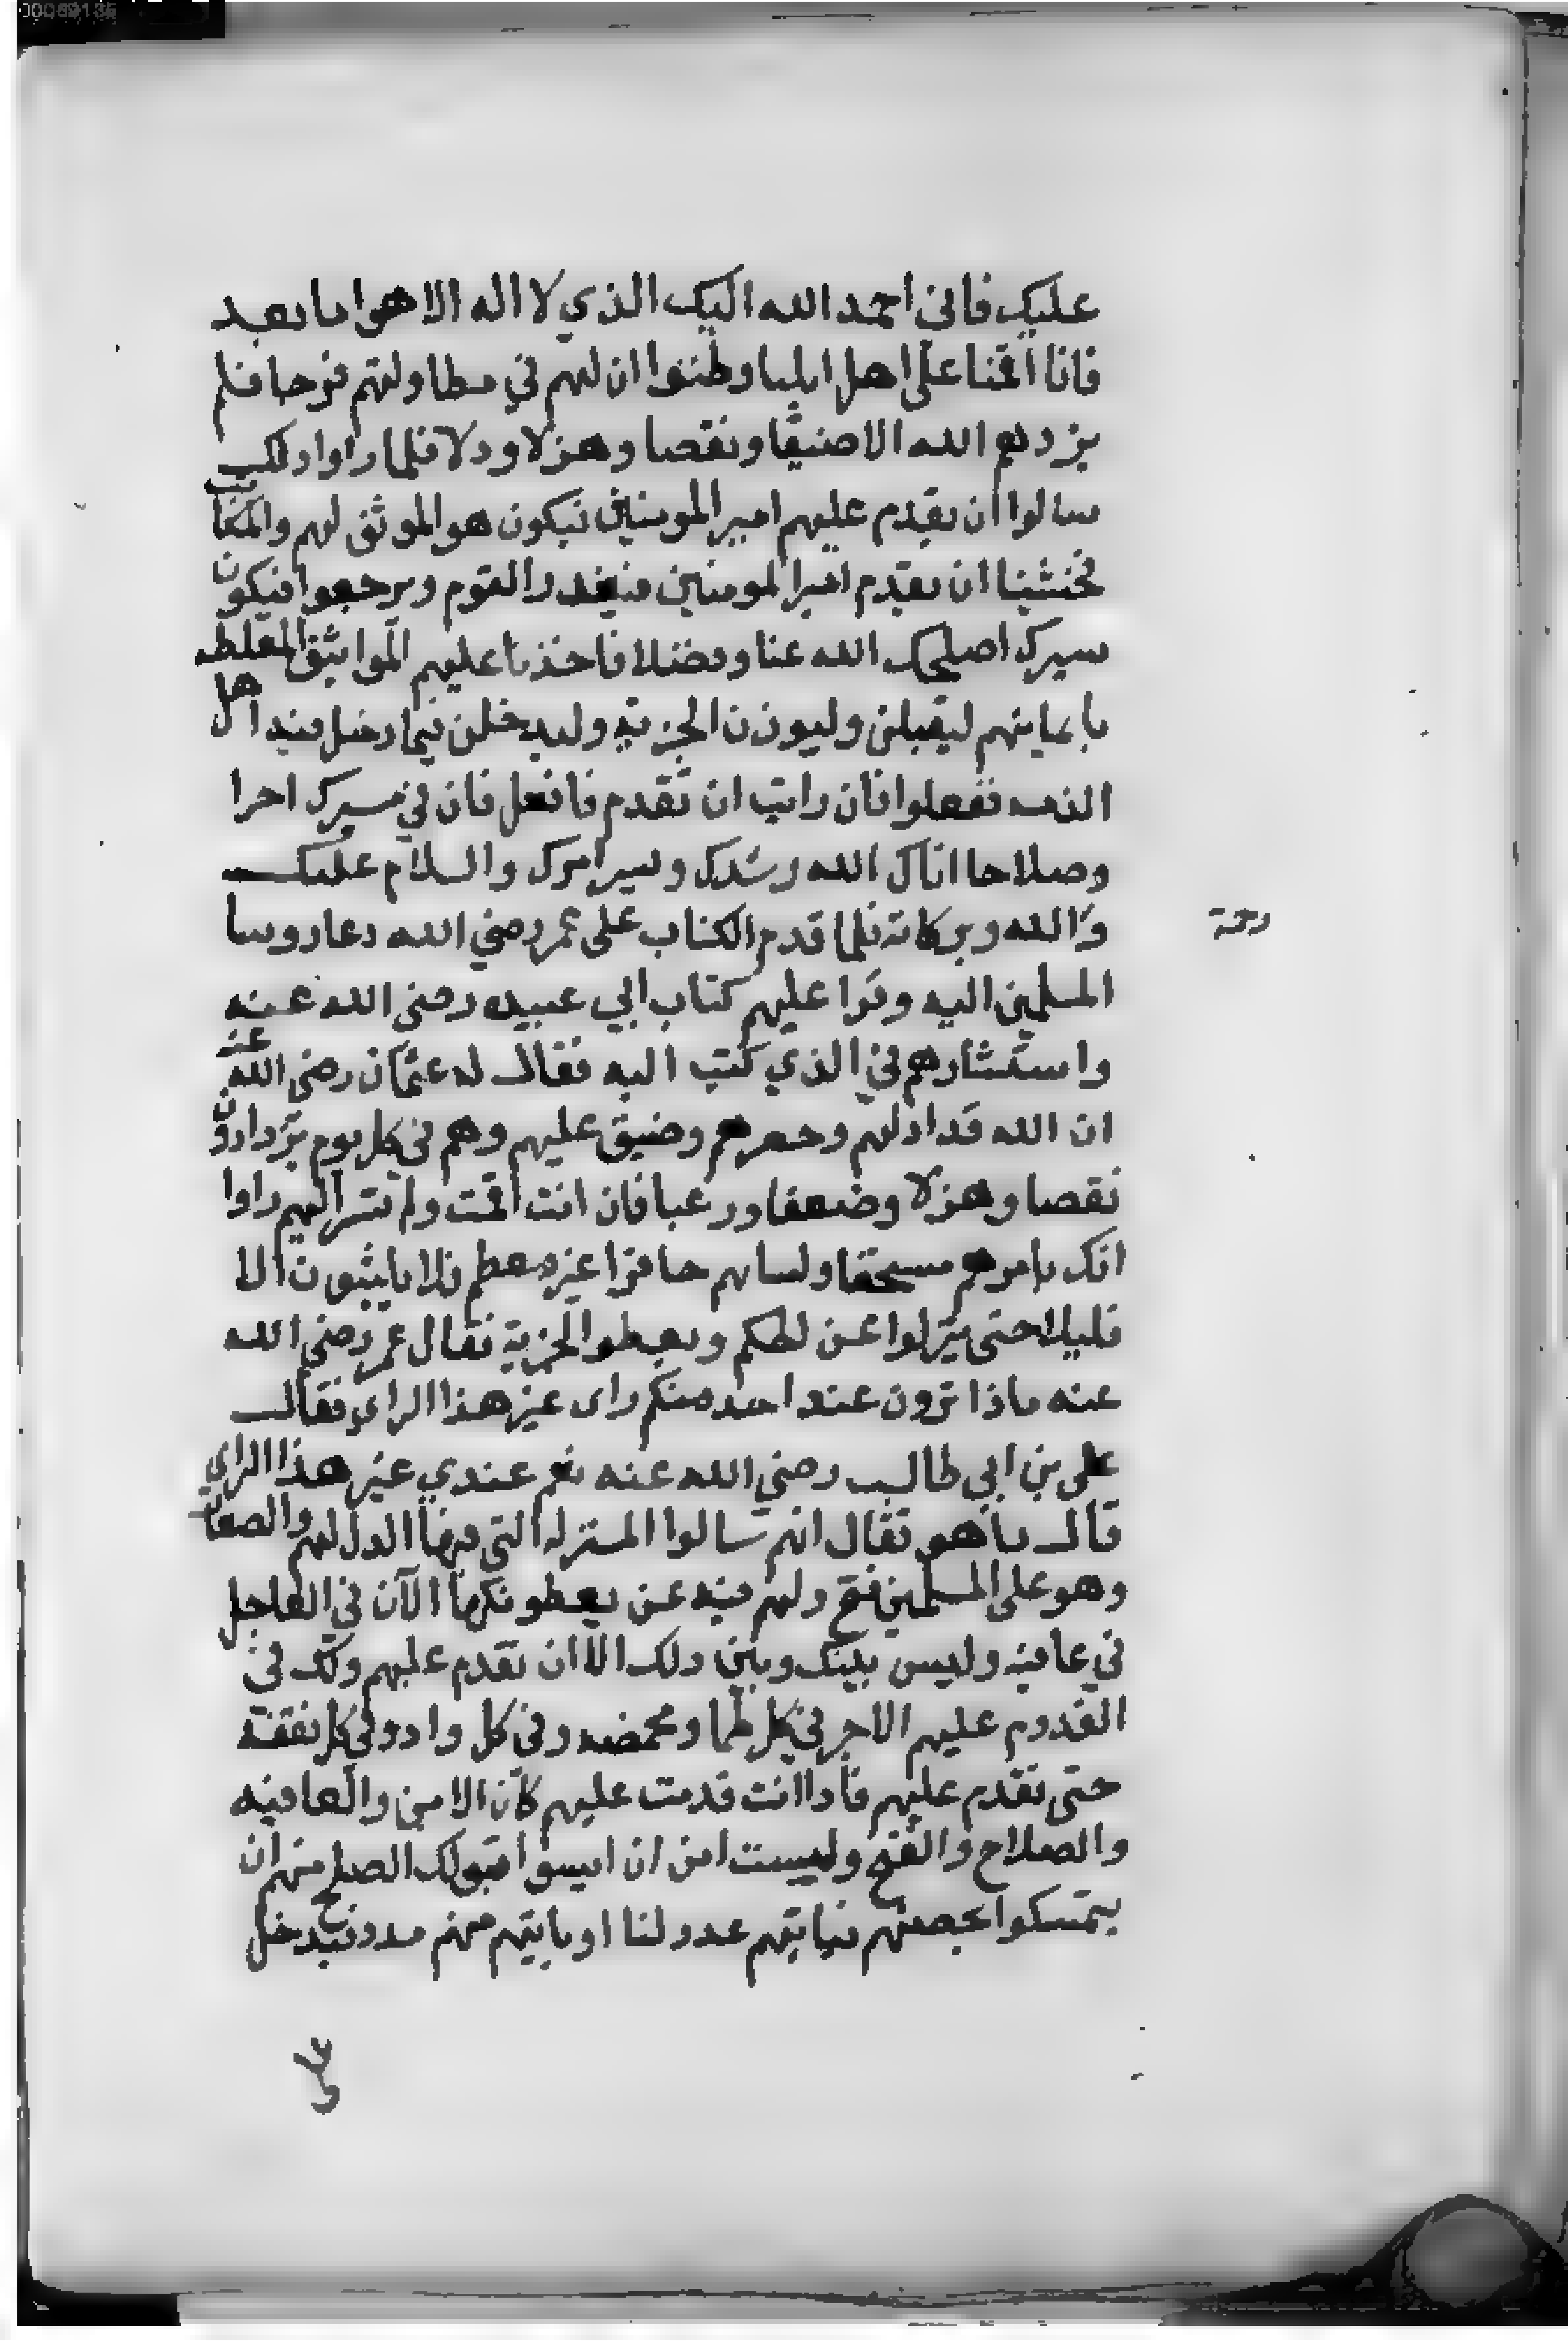 عليك فاني احمد الله اليك الذي لا اله الا هو اما بعد
فانا اقمنا على اهل ايليا وظنوا ان لهم في مطاولتهم فرحا فلم
يزدهم الله الا ضيقا ونقصا وهزلا وذلا فلما راوا ذلك
سالوا ان يقدم عليهم امير المومنين فيكون هو الموثق لهم والمكاتب
فخشينا ان يقدم امير المومنين فيغدر القوم ويرجعوا فيكون
سيرك اصلحك الله عنا وفضلا فاخذنا عليهم المواثيق المغلظه
بايمانهم ليقبلن وليودن الجزية وليدخلن فيما دخل فيه اهل
الذمه ففعلوا فان رايت ان تقدم فافعل فان في مسيرك اجرا
وصلاحا اتاك الله رشدك ويسر امرك والسلام عليك
ورحمة الله وبركاته فلما قدم الكتاب على عمر رضي الله دعا روسا
المسلمين اليه وقرا عليهم كتاب ابي عبيده رضي الله عنه
واستشارهم في الذي كتب اليه فقال له عثمان رضي الله عنه
ان الله قد اذلهم وحصرهم وضيق عليهم وهم في كل يوم يزدادون
نقصا وهزلا وضعفا ورعبا فان انت اقمت ولم تسر اليهم راوا
انك بامرهم مستخفا ولشانهم حاقرا غير معظم فلا يلبثون الا
قليلا حتى ينزلوا على حكمكم ويعطوا الجزية فقال عمر رضي الله
عنه ماذا ترون عند احد منكم راى غير هذا الراي فقال
على بن ابي طالب رضي الله عنه نعم عندي غير هذا الراي
قال ما هو فقال انهم سالوا المنزله التي فيها الذل لهم والصغار
وهو على المسلمين فتح ولهم فيه عز يعطونكها الآن في العاجل
في عافيه وليس بينك وبين ذلك الا ان تقدم عليهم ولك في
القدوم عليهم الاجر في كل ظما ومخمصه وفي كل واد وفي كل نفقة
حتى تقدم عليهم فاذا انت قدمت عليهم كان الامن والعافيه
والصلاح والفتح وليست امن ان ايسوا قبولك الصلح منهم ان
يتمسكوا بحصنهم فياتيهم عدو لنا او ياتيهم منهم مدد فيدخل
على